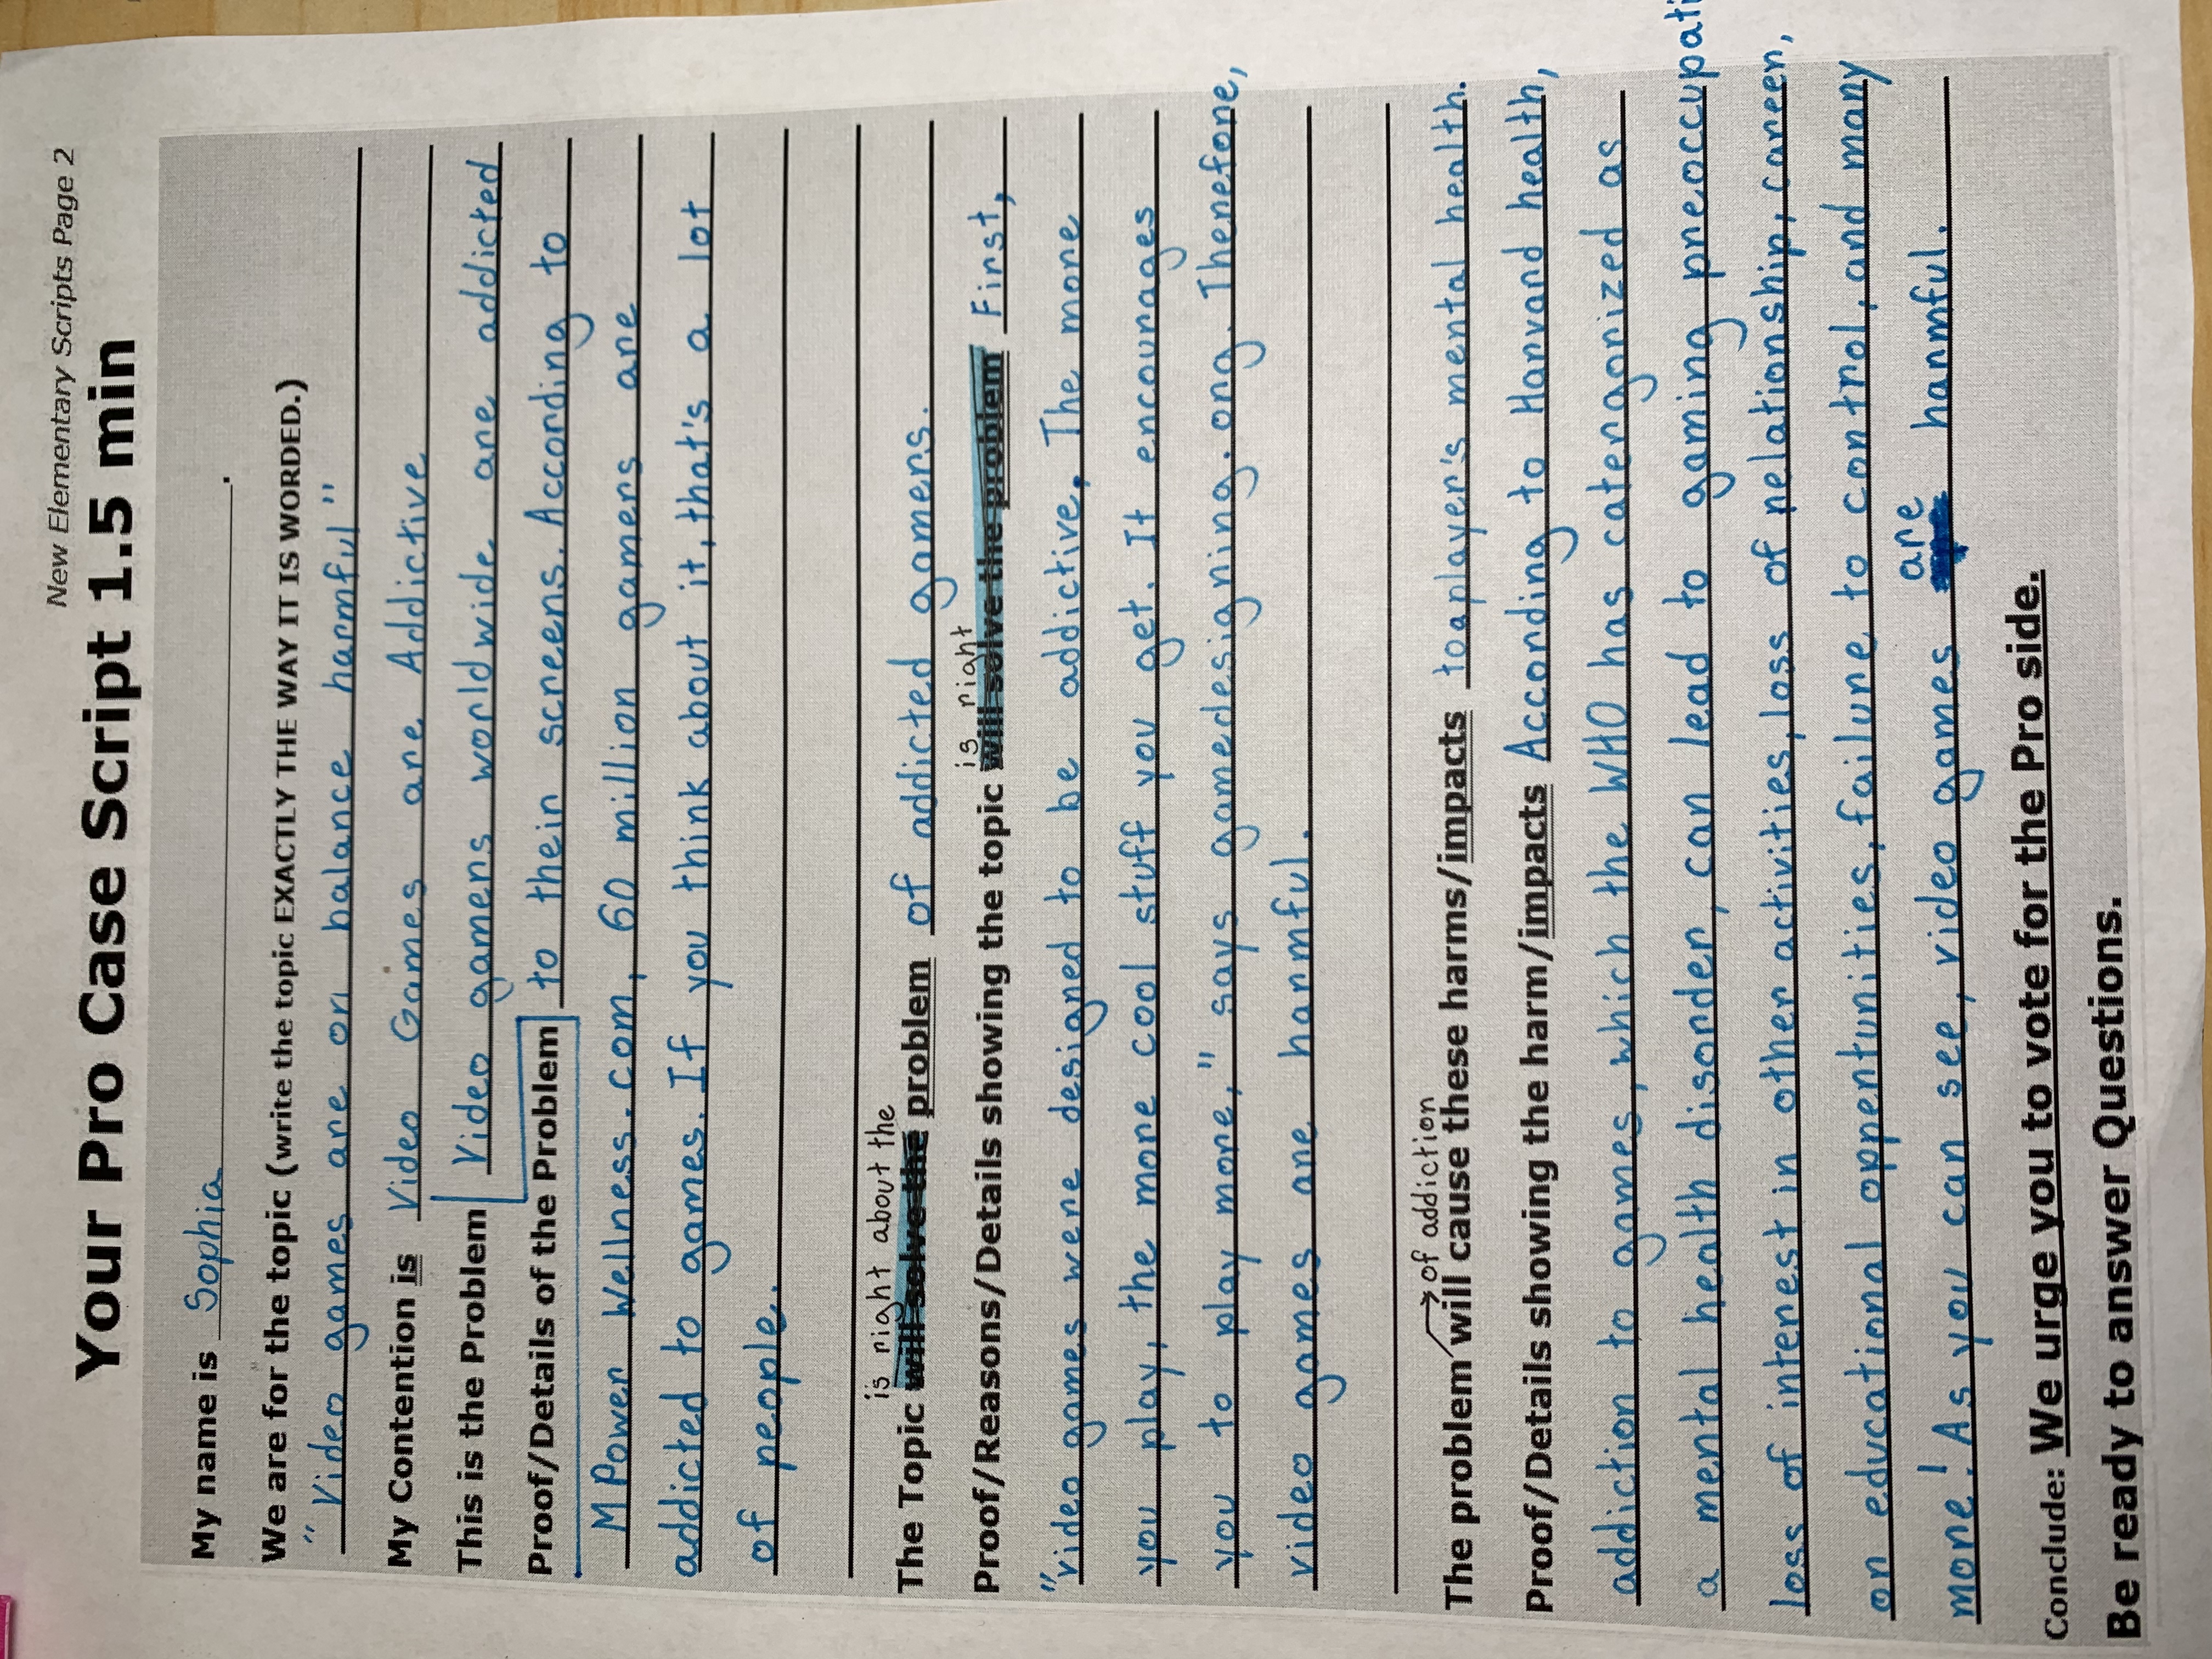 New Elementary Scripts Page 2
Your Pro Case Script 1.5 min
My name is Sophia.
We are for the topic (write the topic EXACTLY THE WAY IT IS WORDED.)
"Video games are on balance harmful"
My Contention is Video Games are Addictive
This is the Problem Video gamers worldwide are addicted
Proof/Details of the Problem to their screens. According to
MPower Wellness.com, 60 million gamers are
addicted to games. If you think about it, that's a lot
of people.
is right about the
The Topic will solve the problem of addicted gamers.
is right
Proof/Reasons/Details showing the topic will solve the problem First,
"Video games were designed to be addictive. The more
you play, the more cool stuff you get. It encourages
you to play more," says gamedesigning.org. Therefore,
video games are harmful.
of addiction
The problem will cause these harms/impacts to a player's mental health.
Proof/Details showing the harm/impacts According to Harvard health,
addiction to games, which the WHO has catergorized as
a mental health disorder, can lead to gaming preoccupati
loss of interest in other activities, loss of relationship, career,
or educational oppertunities, failure to control, and many
are
more! As you can see, video games harmful.
Conclude: We urge you to vote for the Pro side.
Be ready to answer Questions.